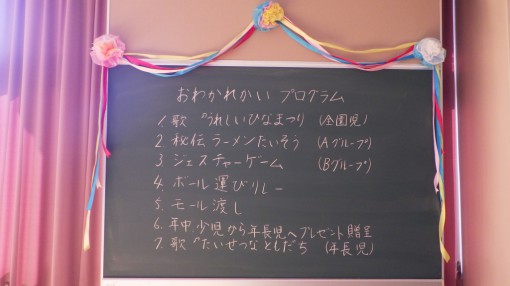 おわかれかい プログラム
1. 歌 "うれしいひなまつり (全園児)
2. 秘伝 ラーメンたいそう (Aグループ)
3 ジェスチャーゲーム (Bグループ)
4. ボール運びリレー
5. モール渡し
6. 年中、少児から年長児へプレゼント贈呈
7. 歌 "たいせつなともだち (年長児)